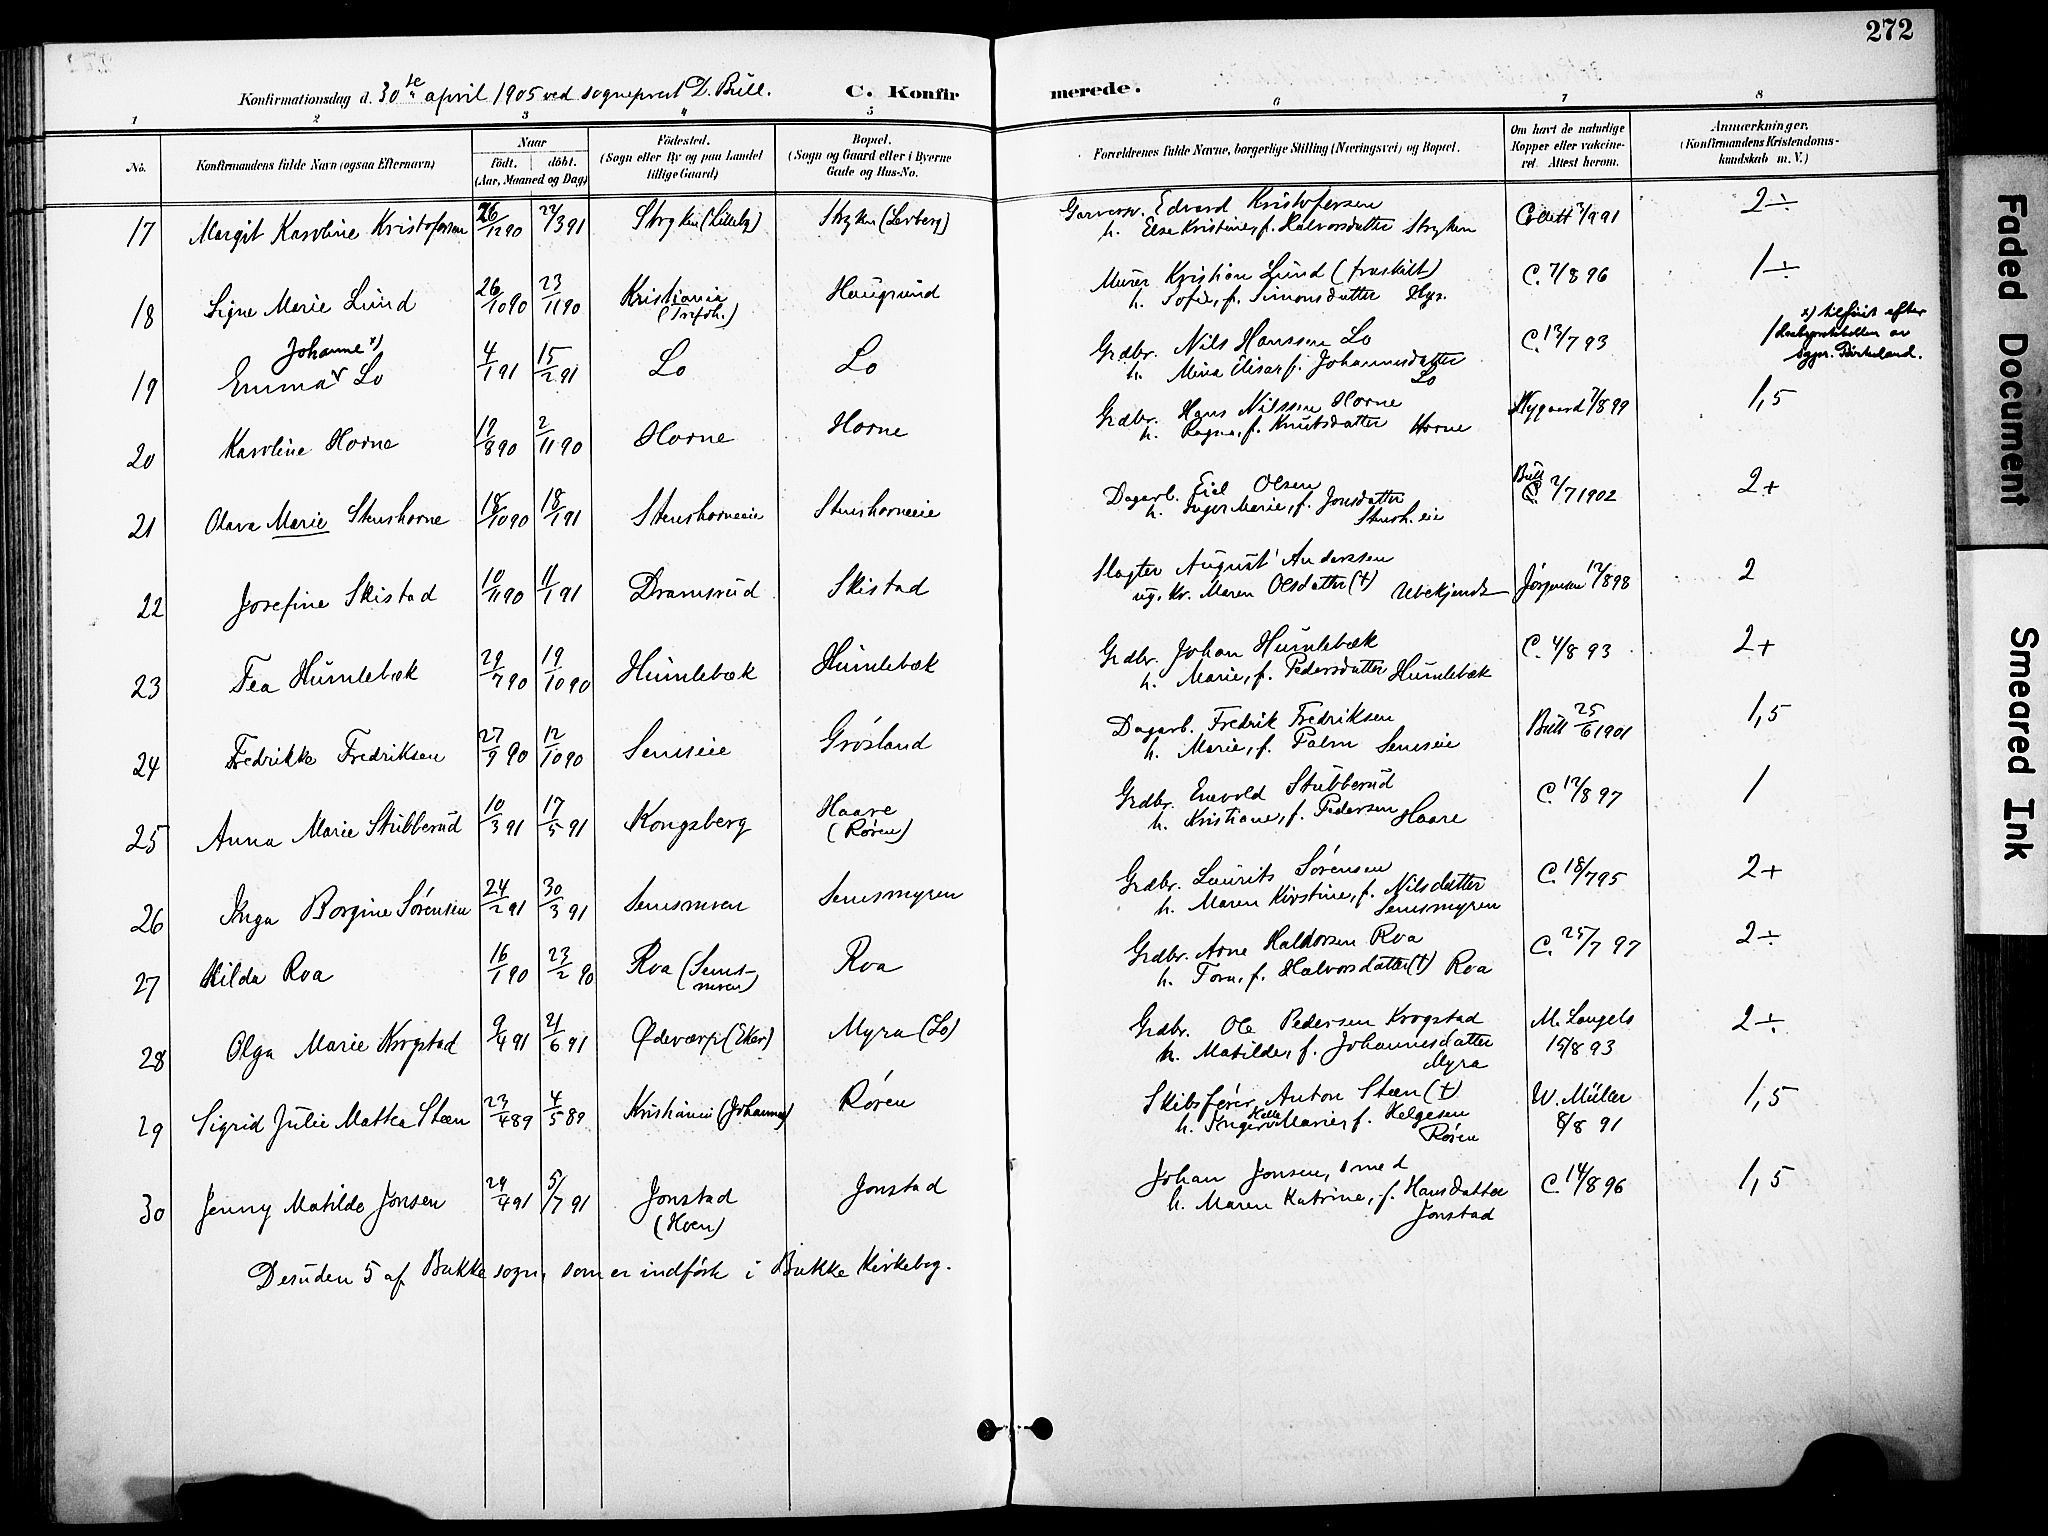 272
Konfirmationsdag d. 30te april 1905 ved sogneprest D. Bull.
C. Konfirmerede.
1 2 3 4 5 6 7 8
No.
Konfirmandens fulde Navn (ogsaa Efternavn)
Naar
födt. döbt.
(Aar, Maaned og Dag)
Födested.
(Sogn eller By og paa Landet
tillige Gaard)
Bopæl.
(Sogn og Gaard eller i Byerne
Gade og Hus-No.
Forældrenes fulde Navne, borgerlige Stilling (Næringsvei) og Bopæl.
Om havt de naturlige
Kopper eller vakcine-
ret. Attest herom.
Anmærkninger.
(Konfirmandens Kristendoms-
kundskab m. V.)
17 Margit Karoline Kristofersen 26/12 90 22/3 91 Stryken Stryken Edvard Kristofersen Collett 91 2÷
h. Else Kristine, f. Halvorsdatter Stryken
18 Signe Marie Lund 26/10 90 23/11 90 Kristiania Haugsund Murer Kristian Lund (fraskilt) C. 7/8 96 1÷
h. Sofie, f. Simonsdatter Hgs.
19 Emma Johanne x) Lo 4/1 91 15/2 91 Lo Lo Grdbr. Nils Hanssen Lo C. 13/7 93 1
h. Mina Elise, f. Johannesdatter Lo
x) tilføiet efter
20 Karoline Horne 19/8 90 2/11 90 Horne Horne Grdbr. Hans Nilssen Horne Nygaard 7/8 99 1,5
h. Ragne, f. Knutsdatter Horne
21 Olava Marie Stenshorne 18/10 90 18/1 91 Stenshorneeie Stenshorneeie Dagarb. Eiel Olsen Bull 2/7 1902 2+
h. Inger Marie, f. Jonsdatter
Stensh. eie
22 Josefine Skistad 10/11 90 11/1 91 Dramsrud Skistad Slagter August Anderssen Jörgensen 17/8 98 2
ug. kv. Maren Olsdatter (†) Ubekjendt
23 Tea Humlebæk 29/7 90 19/10 90 Humlebæk Humlebæk Grdbr. Johan Humlebæk C. 4/8 93 2+
h. Marie, f. Pedersdatter Humlebæk
24 Fredrikke Fredriksen 27/9 90 12/10 90 Semseie Grösland Dagarb. Fredrik Fredriksen Bull 25/6 1901 1,5
h. Marie, f. Palm Semseie
25 Anna Marie Stubberud 10/3 91 17/5 91 Kongsberg Haare (Røren) Grdbr. Enevold Stubberud C. 17/8 97 1
h. Kristiane, f. Pedersen Haare
26 Inga Borgine Sörensen 24/2 91 30/3 91 Semsmoen Semsmyren Grdbr. Laurits Sörensen C. 18/7 95 2+
h. Maren Kirstine, f. Nilsdatter
Semsmyren
27 Hilda Roa 16/1 90 23/2 90 Roa (Semsmoen) Roa Grdbr. Arne Haldorsen Roa C. 25/7 97 2÷
h. Torn, f. Halvorsdatter (†) Roa
28 Olga Marie Krogstad 9/4 91 21/6 91 Ødeværp (Eker) Myra (Lo) Grdbr. Ole Pedersen Krogstad M. Langels 15/8 93 2÷
h. Matilde, f. Johannesdatter
Myra
29 Sigrid Julie Mattea Steen 23/4 89 4/5 89 Kristiania (Johannes) Røren Skibsfører Anton Steen (†) W. Müller 8/8 91 1,5
h. Inger Helle Marie, f. Helgesen
Røren
30 Jenny Matilde Jonsen 29/4 91 5/7 91 Jonstad (Hoen) Jonstad Johan Jonsen, smed C. 14/8 96 1,5
h. Maren Katrine, f. Hansdatter
Jonstad
Desuden 5 af Bakke sogn, som er indført i Bakke Kirkebog.
Faded Document
Smeared Ink